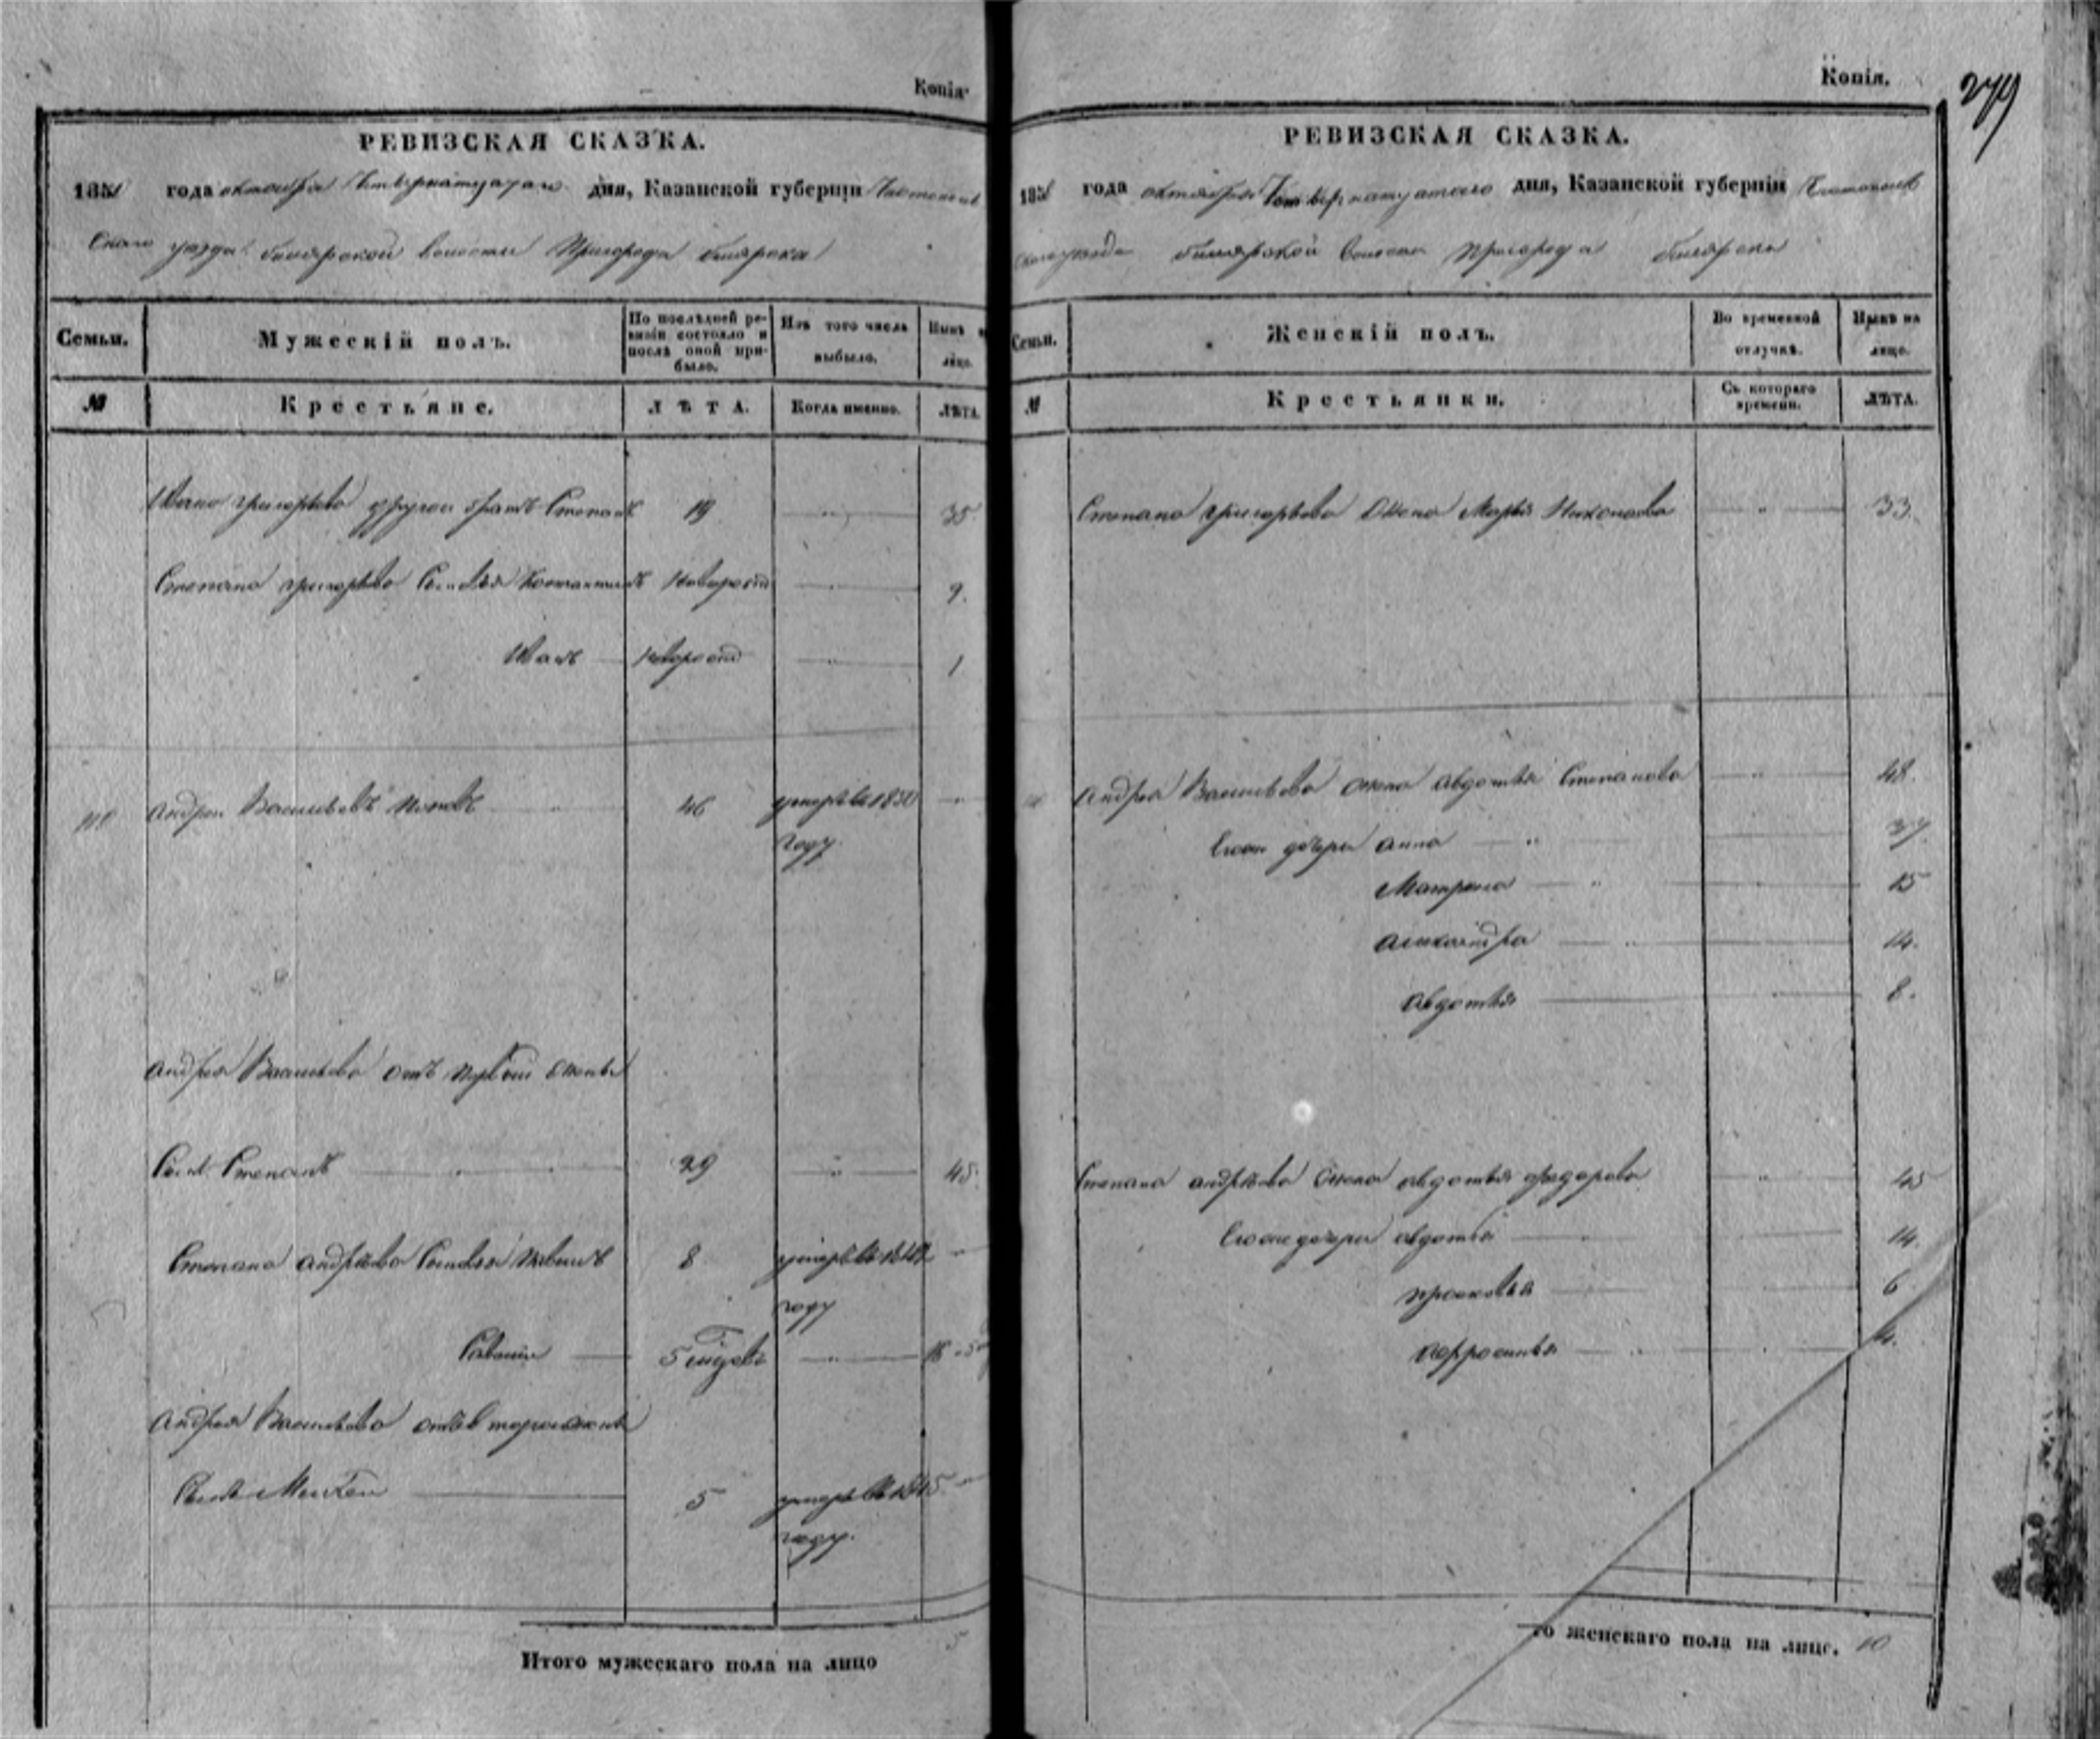 Копія.
РЕВИЗСКАЯ СКАЗКА.
1850 года октября дня, Казанской губерніи Чистополь
скаго уѣзда билярской волости Пригорода билярска
Семьи.
Мужескій полъ.
По послѣдней ре-
визіи состояло и
послѣ оной при-
было.
Изъ того числа
выбыло.
Нынѣ н
лицо.
№
Крестьяне.
ЛѢТА.
Когда именно.
ЛѢТА.
Ивана григорьева другой братъ Степанъ 19 35.
Степана григорьева Сыновья Костантинъ Новорожд 9.
Иванъ Новорожд 1
Андрей Васильевъ Поповъ 46 умеръ въ 1850
году.
Андрея Васильева отъ первой жены
Сынъ Степанъ 29 45.
Степана андрѣева Сыновья 8 умеръ въ
году
5
Андрея Васильева отъ второй жены
Сынъ 5 умеръ въ 1845
году.
Итого мужескаго пола на лицо 5
Копія.
279
РЕВИЗСКАЯ СКАЗКА.
года октября дня, Казанской губерніи Чистополь
скаго уѣзда билярской волости пригорода билярска
Семьи.
Женскій полъ.
Во временной
отлучкѣ.
Нынѣ на
лицо.
№
Крестьянки.
Съ котораго
времени.
ЛѢТА.
Степана григорьева жена Марья 33.
Андрея Васильева жена авдотья Степанова 48.
Егоже дочери анна 37.
Матрена 15
александра 14.
авдотья 8.
Степана андрѣева жена авдотья федорова 45
Егоже дочери авдотья 14.
прасковья 6
4.
го женскаго пола на лице. 10